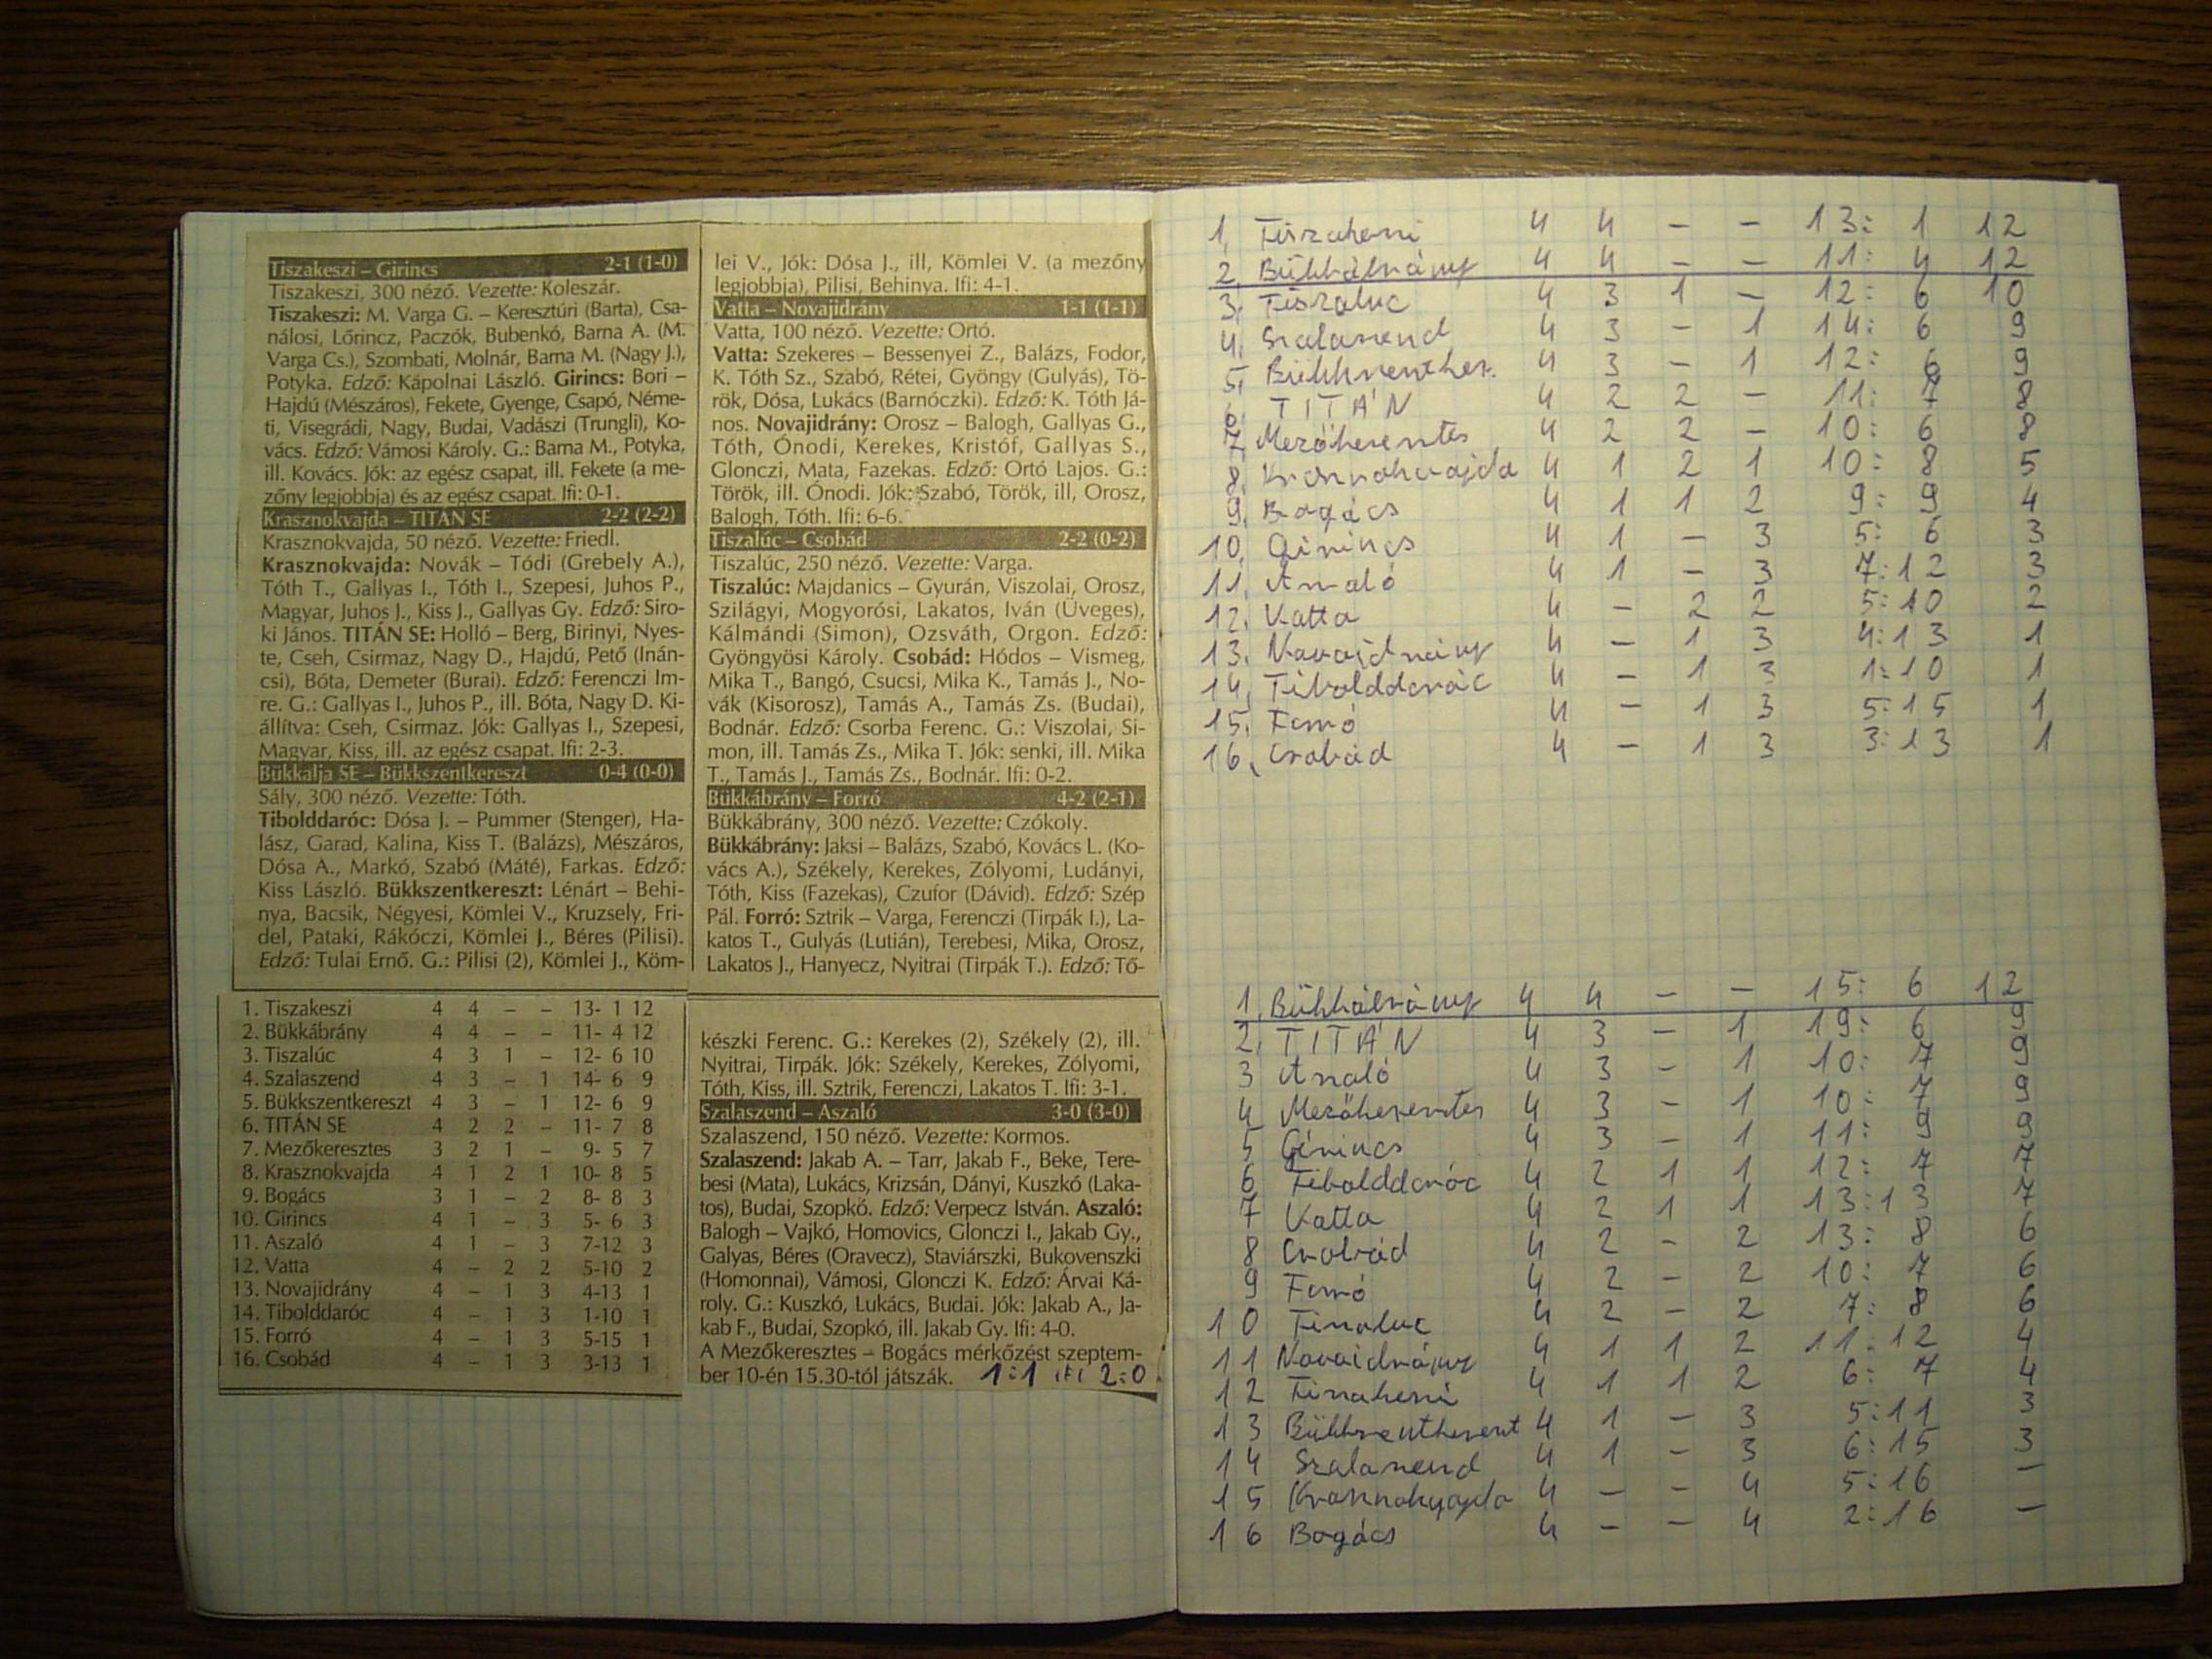 Tiszakeszi – Girincs 2-1 (1-0)
Tiszakeszi, 300 néző. Vezette: Koleszár.
Tiszakeszi: M. Varga G. – Keresztúri (Barta), Csa-
nálosi, Lőrincz, Paczók, Bubenkó, Barna A. (M.
Varga Cs.), Szombati, Molnár, Barna M. (Nagy J.),
Potyka. Edző: Kápolnai László. Girincs: Bori –
Hajdú (Mészáros), Fekete, Gyenge, Csapó, Néme-
ti, Visegrádi, Nagy, Budai, Vadászi (Trungli), Ko-
vács. Edző: Vámosi Károly. G.: Barna M., Potyka,
ill. Kovács. Jók: az egész csapat, ill. Fekete (a me-
zőny legjobbja) és az egész csapat. Ifi: 0-1.
Krasznokvajda – TITÁN SE 2-2 (2-2)
Krasznokvajda, 50 néző. Vezette: Friedl.
Krasznokvajda: Novák – Tódi (Grebely A.),
Tóth T., Gallyas I., Tóth I., Szepesi, Juhos P.,
Magyar, Juhos J., Kiss J., Gallyas Gy. Edző: Siro-
ki János. TITÁN SE: Holló – Berg, Birinyi, Nyes-
te, Cseh, Csirmaz, Nagy D., Hajdú, Pető (Inán-
csi), Bóta, Demeter (Burai). Edző: Ferenczi Im-
re. G.: Gallyas I., Juhos P., ill. Bóta, Nagy D. Ki-
állítva: Cseh, Csirmaz. Jók: Gallyas I., Szepesi,
Magyar, Kiss, ill. az egész csapat. Ifi: 2-3.
Bükkalja SE – Bükkszentkereszt 0-4 (0-0)
Sály, 300 néző. Vezette: Tóth.
Tibolddaróc: Dósa J. – Pummer (Stenger), Ha-
lász, Garad, Kalina, Kiss T. (Balázs), Mészáros,
Dósa A., Markó, Szabó (Máté), Farkas. Edző:
Kiss László. Bükkszentkereszt: Lénárt – Behi-
nya, Bacsik, Négyesi, Kömlei V., Kruzsely, Fri-
del, Pataki, Rákóczi, Kömlei J., Béres (Pilisi).
Edző: Tulai Ernő. G.: Pilisi (2), Kömlei J., Köm-
lei V., Jók: Dósa J., ill, Kömlei V. (a mezőny
legjobbja), Pilisi, Behinya. Ifi: 4-1.
Vatta – Novajidrány 1-1 (1-1)
Vatta, 100 néző. Vezette: Ortó.
Vatta: Szekeres – Bessenyei Z., Balázs, Fodor,
K. Tóth Sz., Szabó, Rétei, Gyöngy (Gulyás), Tö-
rök, Dósa, Lukács (Barnóczki). Edző: K. Tóth Já-
nos. Novajidrány: Orosz – Balogh, Gallyas G.,
Tóth, Ónodi, Kerekes, Kristóf, Gallyas S.,
Glonczi, Mata, Fazekas. Edző: Ortó Lajos. G.:
Török, ill. Ónodi. Jók: Szabó, Török, ill, Orosz,
Balogh, Tóth. Ifi: 6-6.
Tiszalúc – Csobád 2-2 (0-2)
Tiszalúc, 250 néző. Vezette: Varga.
Tiszalúc: Majdanics – Gyurán, Viszolai, Orosz,
Szilágyi, Mogyorósi, Lakatos, Iván (Üveges),
Kálmándi (Simon), Ozsváth, Orgon. Edző:
Gyöngyösi Károly. Csobád: Hódos – Vismeg,
Mika T., Bangó, Csucsi, Mika K., Tamás J., No-
vák (Kisorosz), Tamás A., Tamás Zs. (Budai),
Bodnár. Edző: Csorba Ferenc. G.: Viszolai, Si-
mon, ill. Tamás Zs., Mika T. Jók: senki, ill. Mika
T., Tamás J., Tamás Zs., Bodnár. Ifi: 0-2.
Bükkábrány – Forró 4-2 (2-1)
Bükkábrány, 300 néző. Vezette: Czókoly.
Bükkábrány: Jaksi – Balázs, Szabó, Kovács L. (Ko-
vács A.), Székely, Kerekes, Zólyomi, Ludányi,
Tóth, Kiss (Fazekas), Czufor (Dávid). Edző: Szép
Pál. Forró: Sztrik – Varga, Ferenczi (Tirpák I.), La-
katos T., Gulyás (Lutián), Terebesi, Mika, Orosz,
Lakatos J., Hanyecz, Nyitrai (Tirpák T.). Edző: Tő-
készki Ferenc. G.: Kerekes (2), Székely (2), ill.
Nyitrai, Tirpák. Jók: Székely, Kerekes, Zólyomi,
Tóth, Kiss, ill. Sztrik, Ferenczi, Lakatos T. Ifi: 3-1.
Szalaszend – Aszaló 3-0 (3-0)
Szalaszend, 150 néző. Vezette: Kormos.
Szalaszend: Jakab A. – Tarr, Jakab F., Beke, Tere-
besi (Mata), Lukács, Krizsán, Dányi, Kuszkó (Laka-
tos), Budai, Szopkó. Edző: Verpecz István. Aszaló:
Balogh – Vajkó, Homovics, Glonczi I., Jakab Gy.,
Galyas, Béres (Oravecz), Staviárszki, Bukovenszki
(Homonnai), Vámosi, Glonczi K. Edző: Árvai Ká-
roly. G.: Kuszkó, Lukács, Budai. Jók: Jakab A., Ja-
kab F., Budai, Szopkó, ill. Jakab Gy. Ifi: 4-0.
A Mezőkeresztes – Bogács mérkőzést szeptem-
ber 10-én 15.30-tól játszák. 1:1 ifi 2:0
1. Tiszakeszi 4 4 – – 13- 1 12
2. Bükkábrány 4 4 – – 11- 4 12
3. Tiszalúc 4 3 1 – 12- 6 10
4. Szalaszend 4 3 – 1 14- 6 9
5. Bükkszentkereszt 4 3 – 1 12- 6 9
6. TITÁN SE 4 2 2 – 11- 7 8
7. Mezőkeresztes 3 2 1 – 9- 5 7
8. Krasznokvajda 4 1 2 1 10- 8 5
9. Bogács 3 1 – 2 8- 8 3
10. Girincs 4 1 – 3 5- 6 3
11. Aszaló 4 1 – 3 7-12 3
12. Vatta 4 – 2 2 5-10 2
13. Novajidrány 4 – 1 3 4-13 1
14. Tibolddaróc 4 – 1 3 1-10 1
15. Forró 4 – 1 3 5-15 1
16. Csobád 4 – 1 3 3-13 1
1, Tiszakeszi 4 4 – – 13: 1 12
2, Bükkábrány 4 4 – – 11: 4 12
3, Tiszaluc 4 3 1 – 12: 6 10
4, Szalaszend 4 3 – 1 14: 6 9
5, Bükkszentker. 4 3 – 1 12: 6 9
6, TITÁN 4 2 2 – 11: 7 8
7, Mezőkeresztes 4 2 2 – 10: 6 8
8, Krasznokvajda 4 1 2 1 10: 8 5
9, Bogács 4 1 1 2 9: 9 4
10, Girincs 4 1 – 3 5: 6 3
11, Aszaló 4 1 – 3 7:12 3
12, Vatta 4 – 2 2 5:10 2
13, Novajdrány 4 – 1 3 4:13 1
14, Tibolddaróc 4 – 1 3 1:10 1
15, Forró 4 – 1 3 5:15 1
16, Csobád 4 – 1 3 3:13 1
1, Bükkábrány 4 4 – – 15: 6 12
2, TITÁN 4 3 – 1 19: 6 9
3 Aszaló 4 3 – 1 10: 7 9
4 Mezőkeresztes 4 3 – 1 10: 7 9
5 Girincs 4 3 – 1 11: 9 9
6 Tibolddaróc 4 2 1 1 12: 7 7
7 Vatta 4 2 1 1 13:13 7
8 Csobád 4 2 – 2 13: 8 6
9 Forró 4 2 – 2 10: 7 6
10 Tiszaluc 4 2 – 2 7: 8 6
11 Novaidrány 4 1 1 2 11:12 4
12 Tiszakeszi 4 1 1 2 6: 7 4
13 Bükkszentkereszt 4 1 – 3 5:11 3
14 Szalaszend 4 1 – 3 6:15 3
15 Krasznokvajda 4 – – 4 5:16 –
16 Bogács 4 – – 4 2:16 –